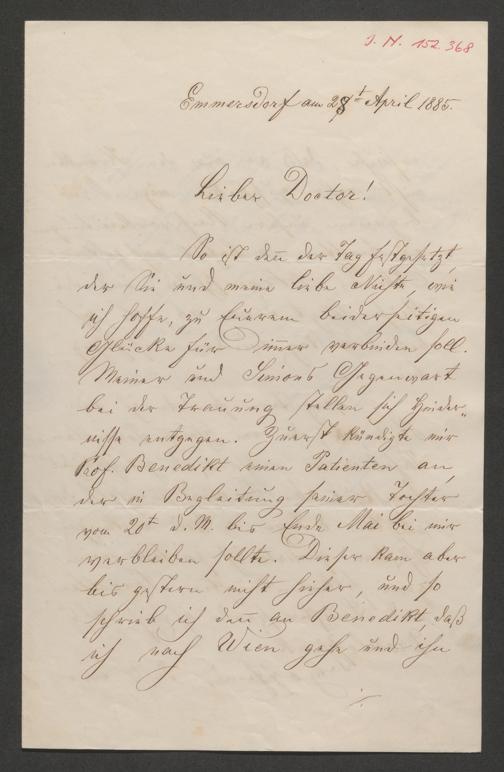 J. N. 152.368
Emmersdorf am 28t April 1885.
Lieber Doctor!
So ist den̅ der Tag festgesetzt,
der Sie und meine liebe Nichte, wie
ich hoffe, zu Eurem beiderseitigen
Glücke für im̅er verbinden soll.
Meiner und Simons Gegenwart
bei der Trauung stellen sich Hinder„
nisse entgegen. Zuerst kündigte mir
Prof. Benedikt einen Patienten an,
der in Begleitung seiner Tochter
vom 20t d. M. bis Ende Mai bei mir
verbleiben sollte. Dieser kam aber
bis gestern nicht hieher, und so
schrieb ich den̅ an Benedikt, daß
ich nach Wien gehe und ihn
./.